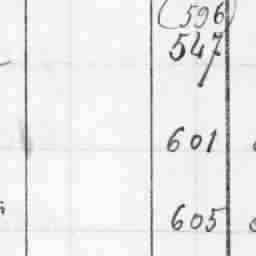 (596)
547
601
605